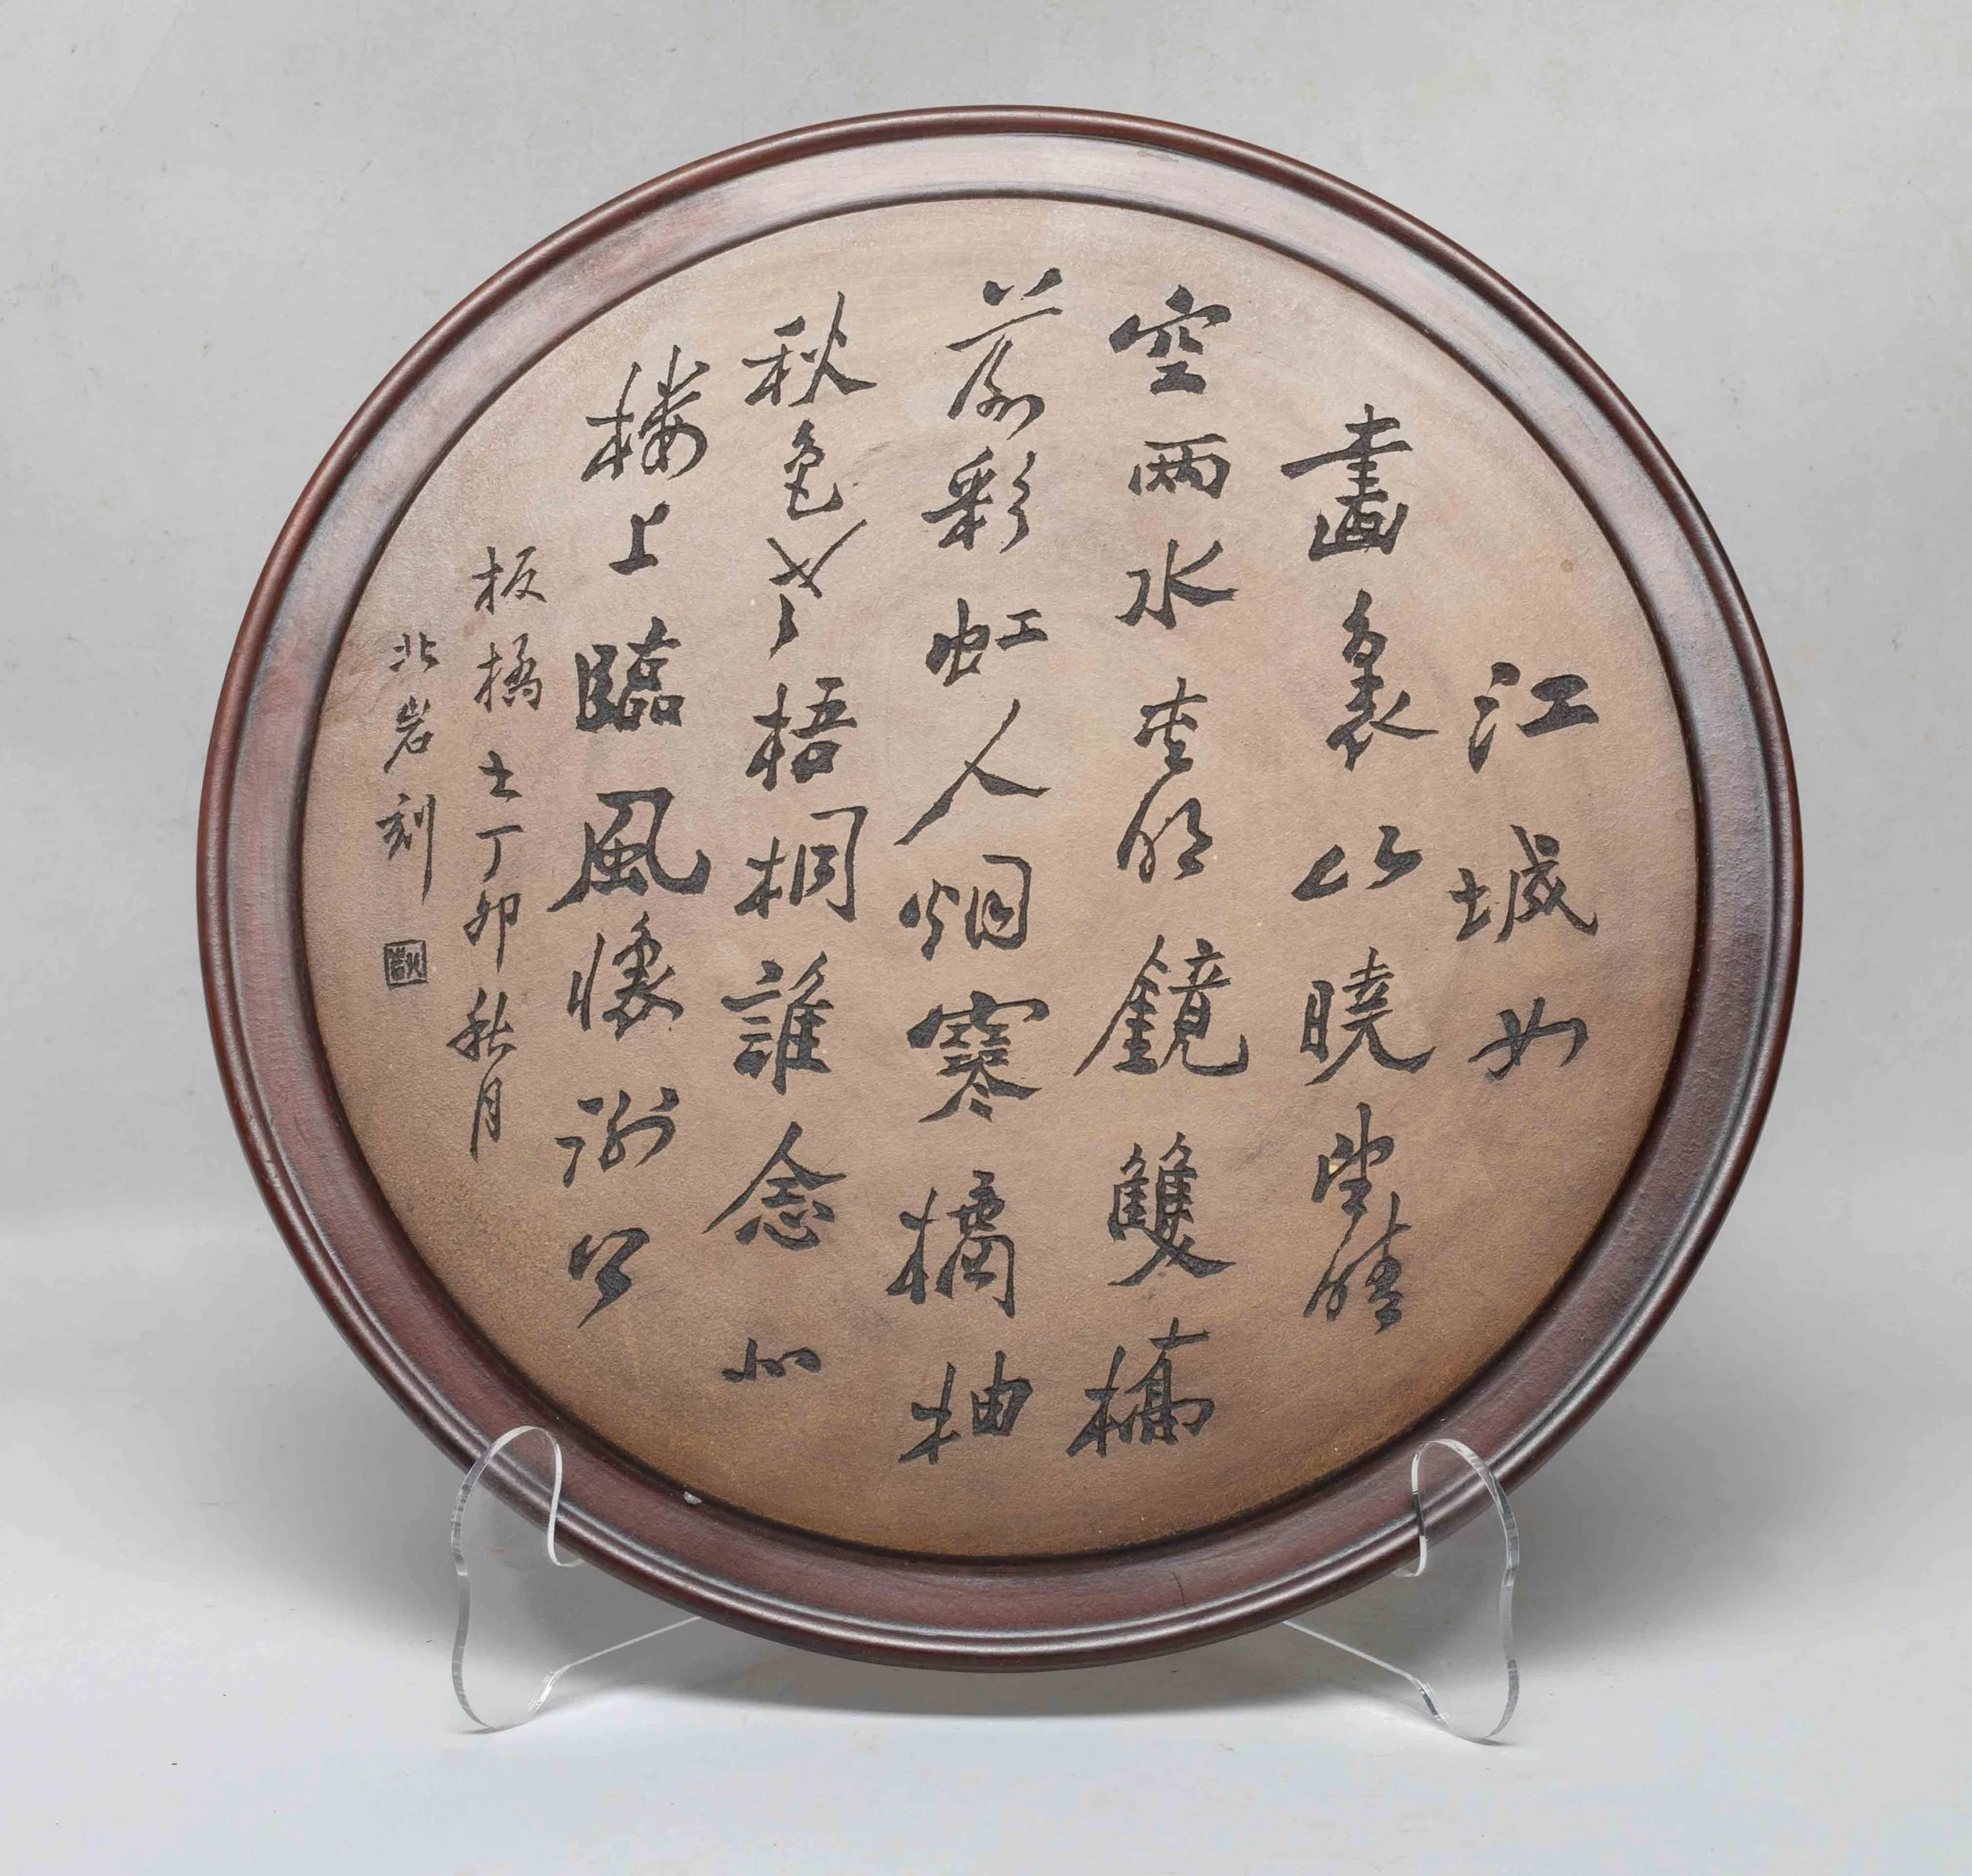 江城如
畫裏山曉望晴
空兩水夾明鏡雙橋
落彩虹人烟寒橘柚
秋色老梧桐誰念北
楼上臨風懷謝公
板橋士丁卯秋月
北岩刻